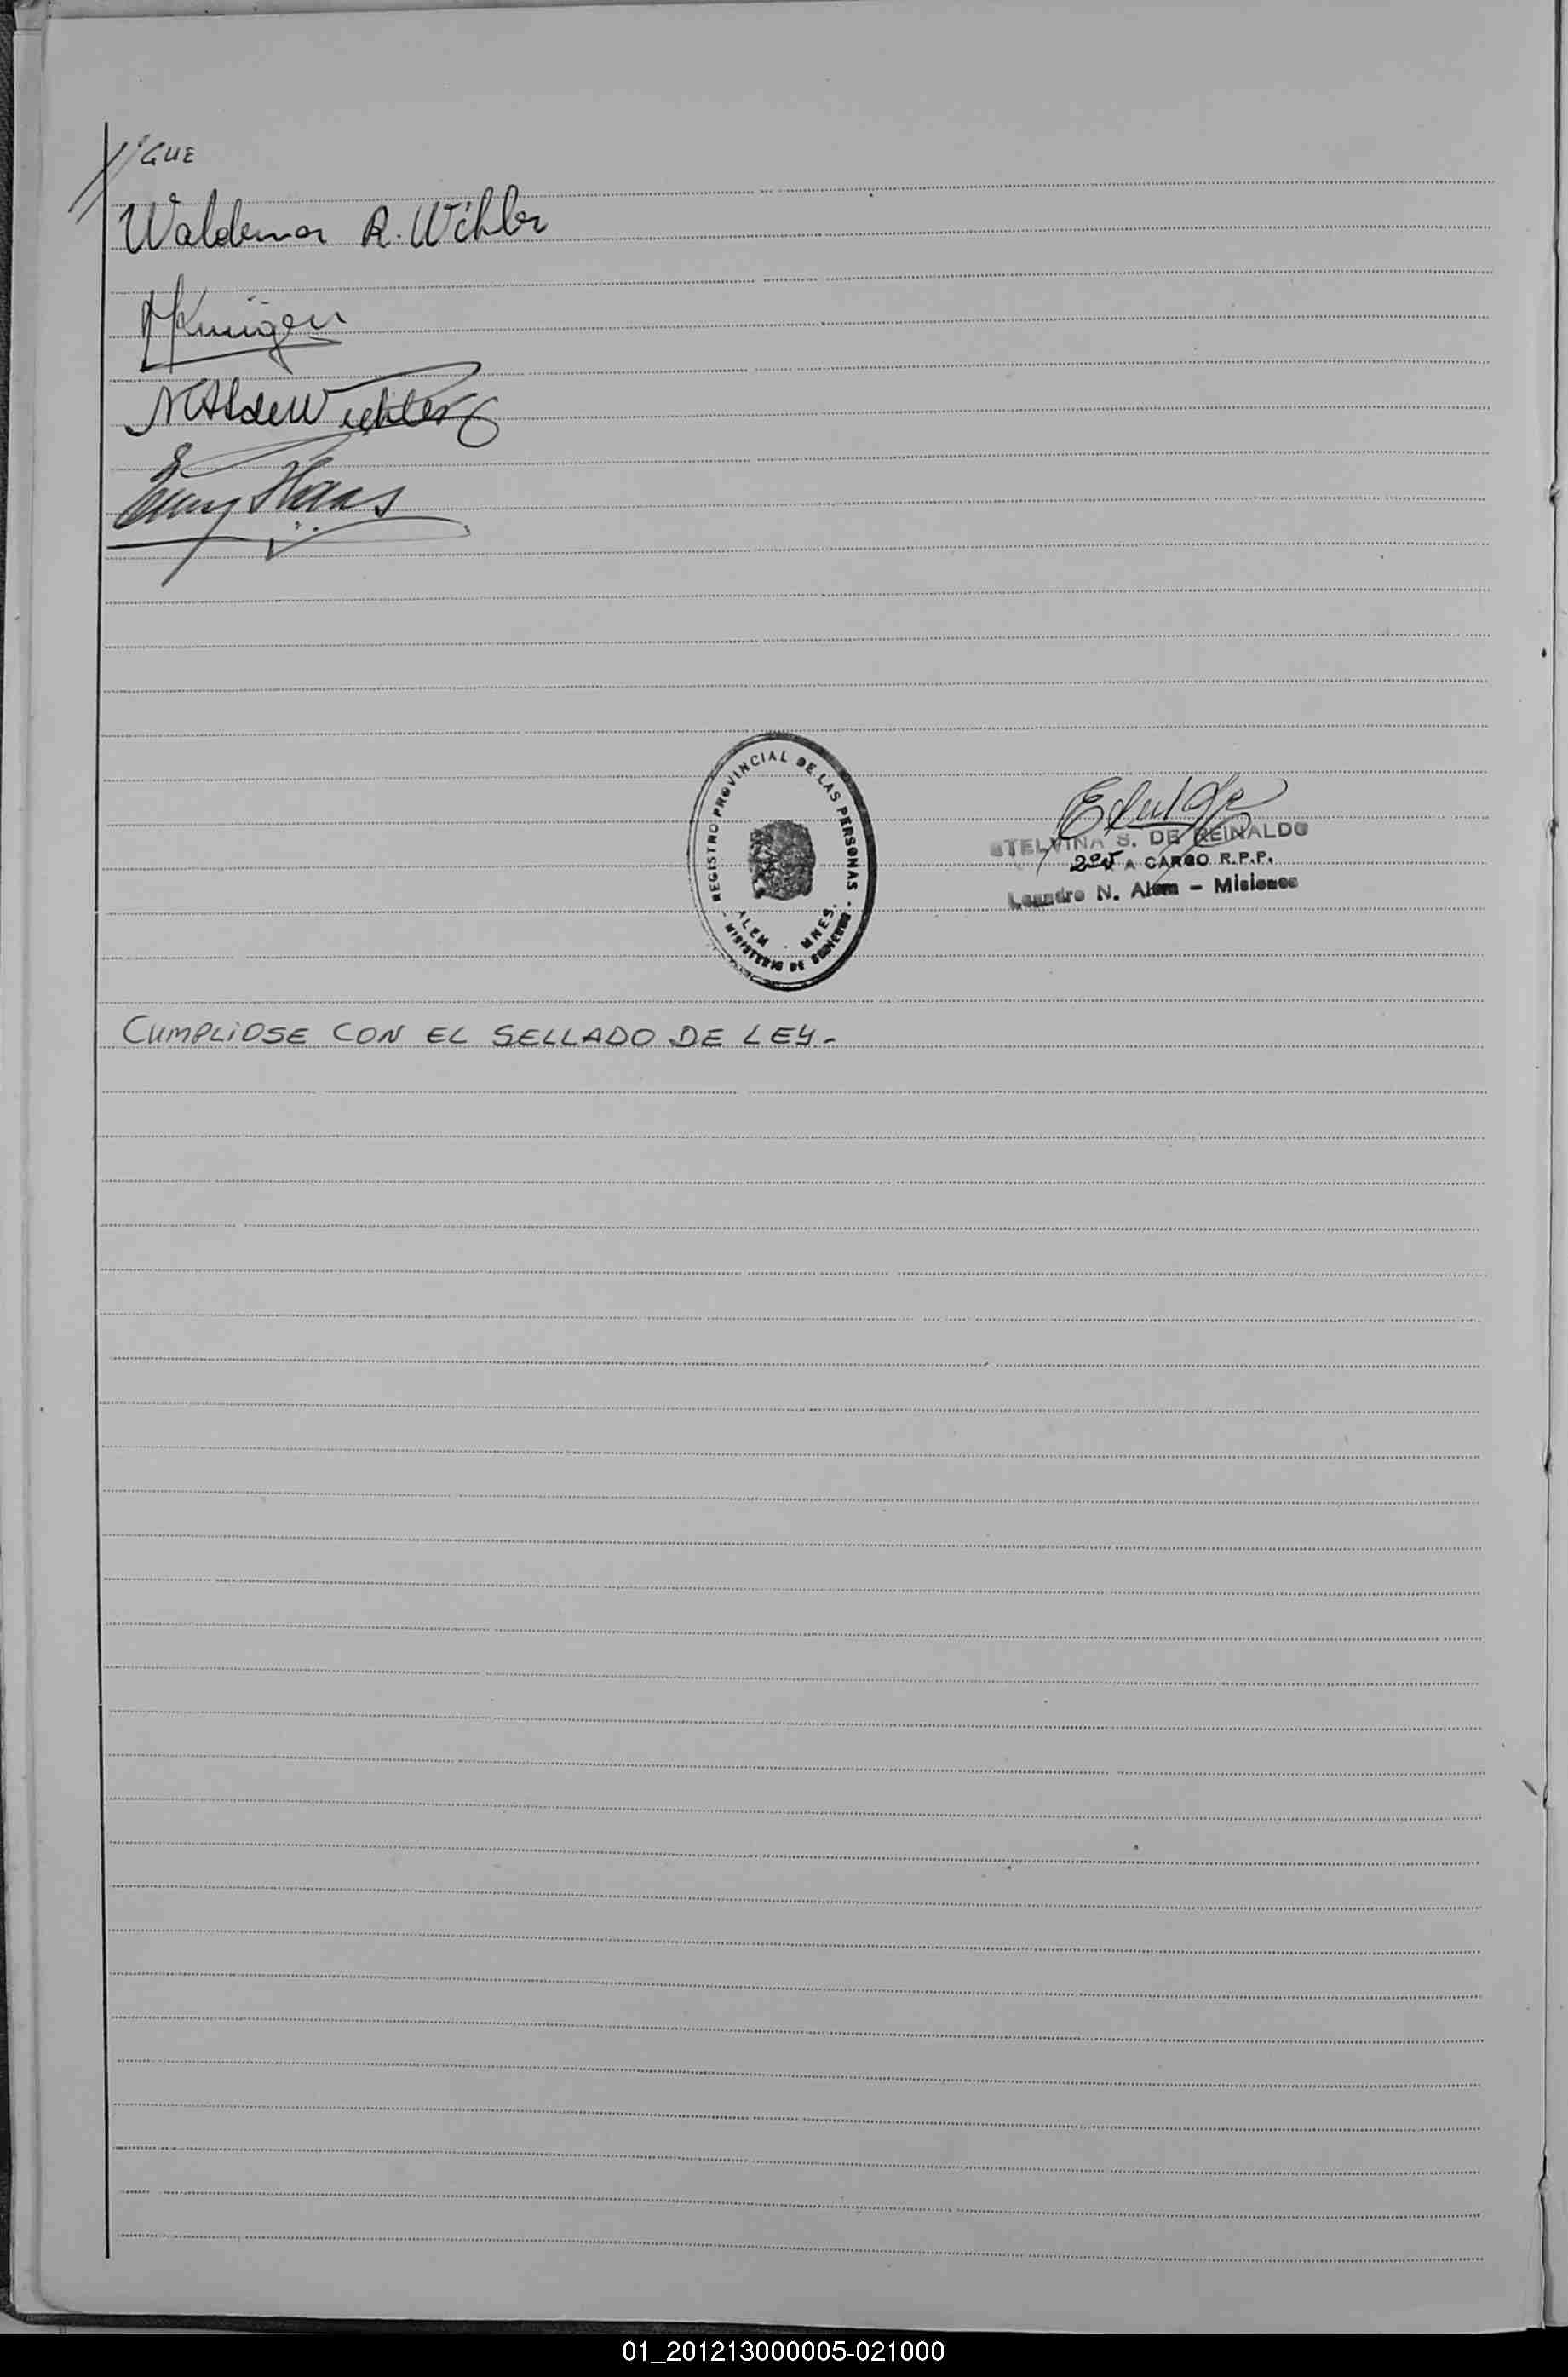 //GUE
Waldemar R. Wichler
N A de Wichler
REGISTRO PROVINCIAL DE LAS PERSONAS
ALEM - MNES.
- MINISTERIO DE GOBIERNO -
STELVINA S. DE REINALDO
A CARGO R.P.P.
Leandro N. Alem - Misiones
CUMPLIOSE CON EL SELLADO DE LEY.-
01_201213000005-021000